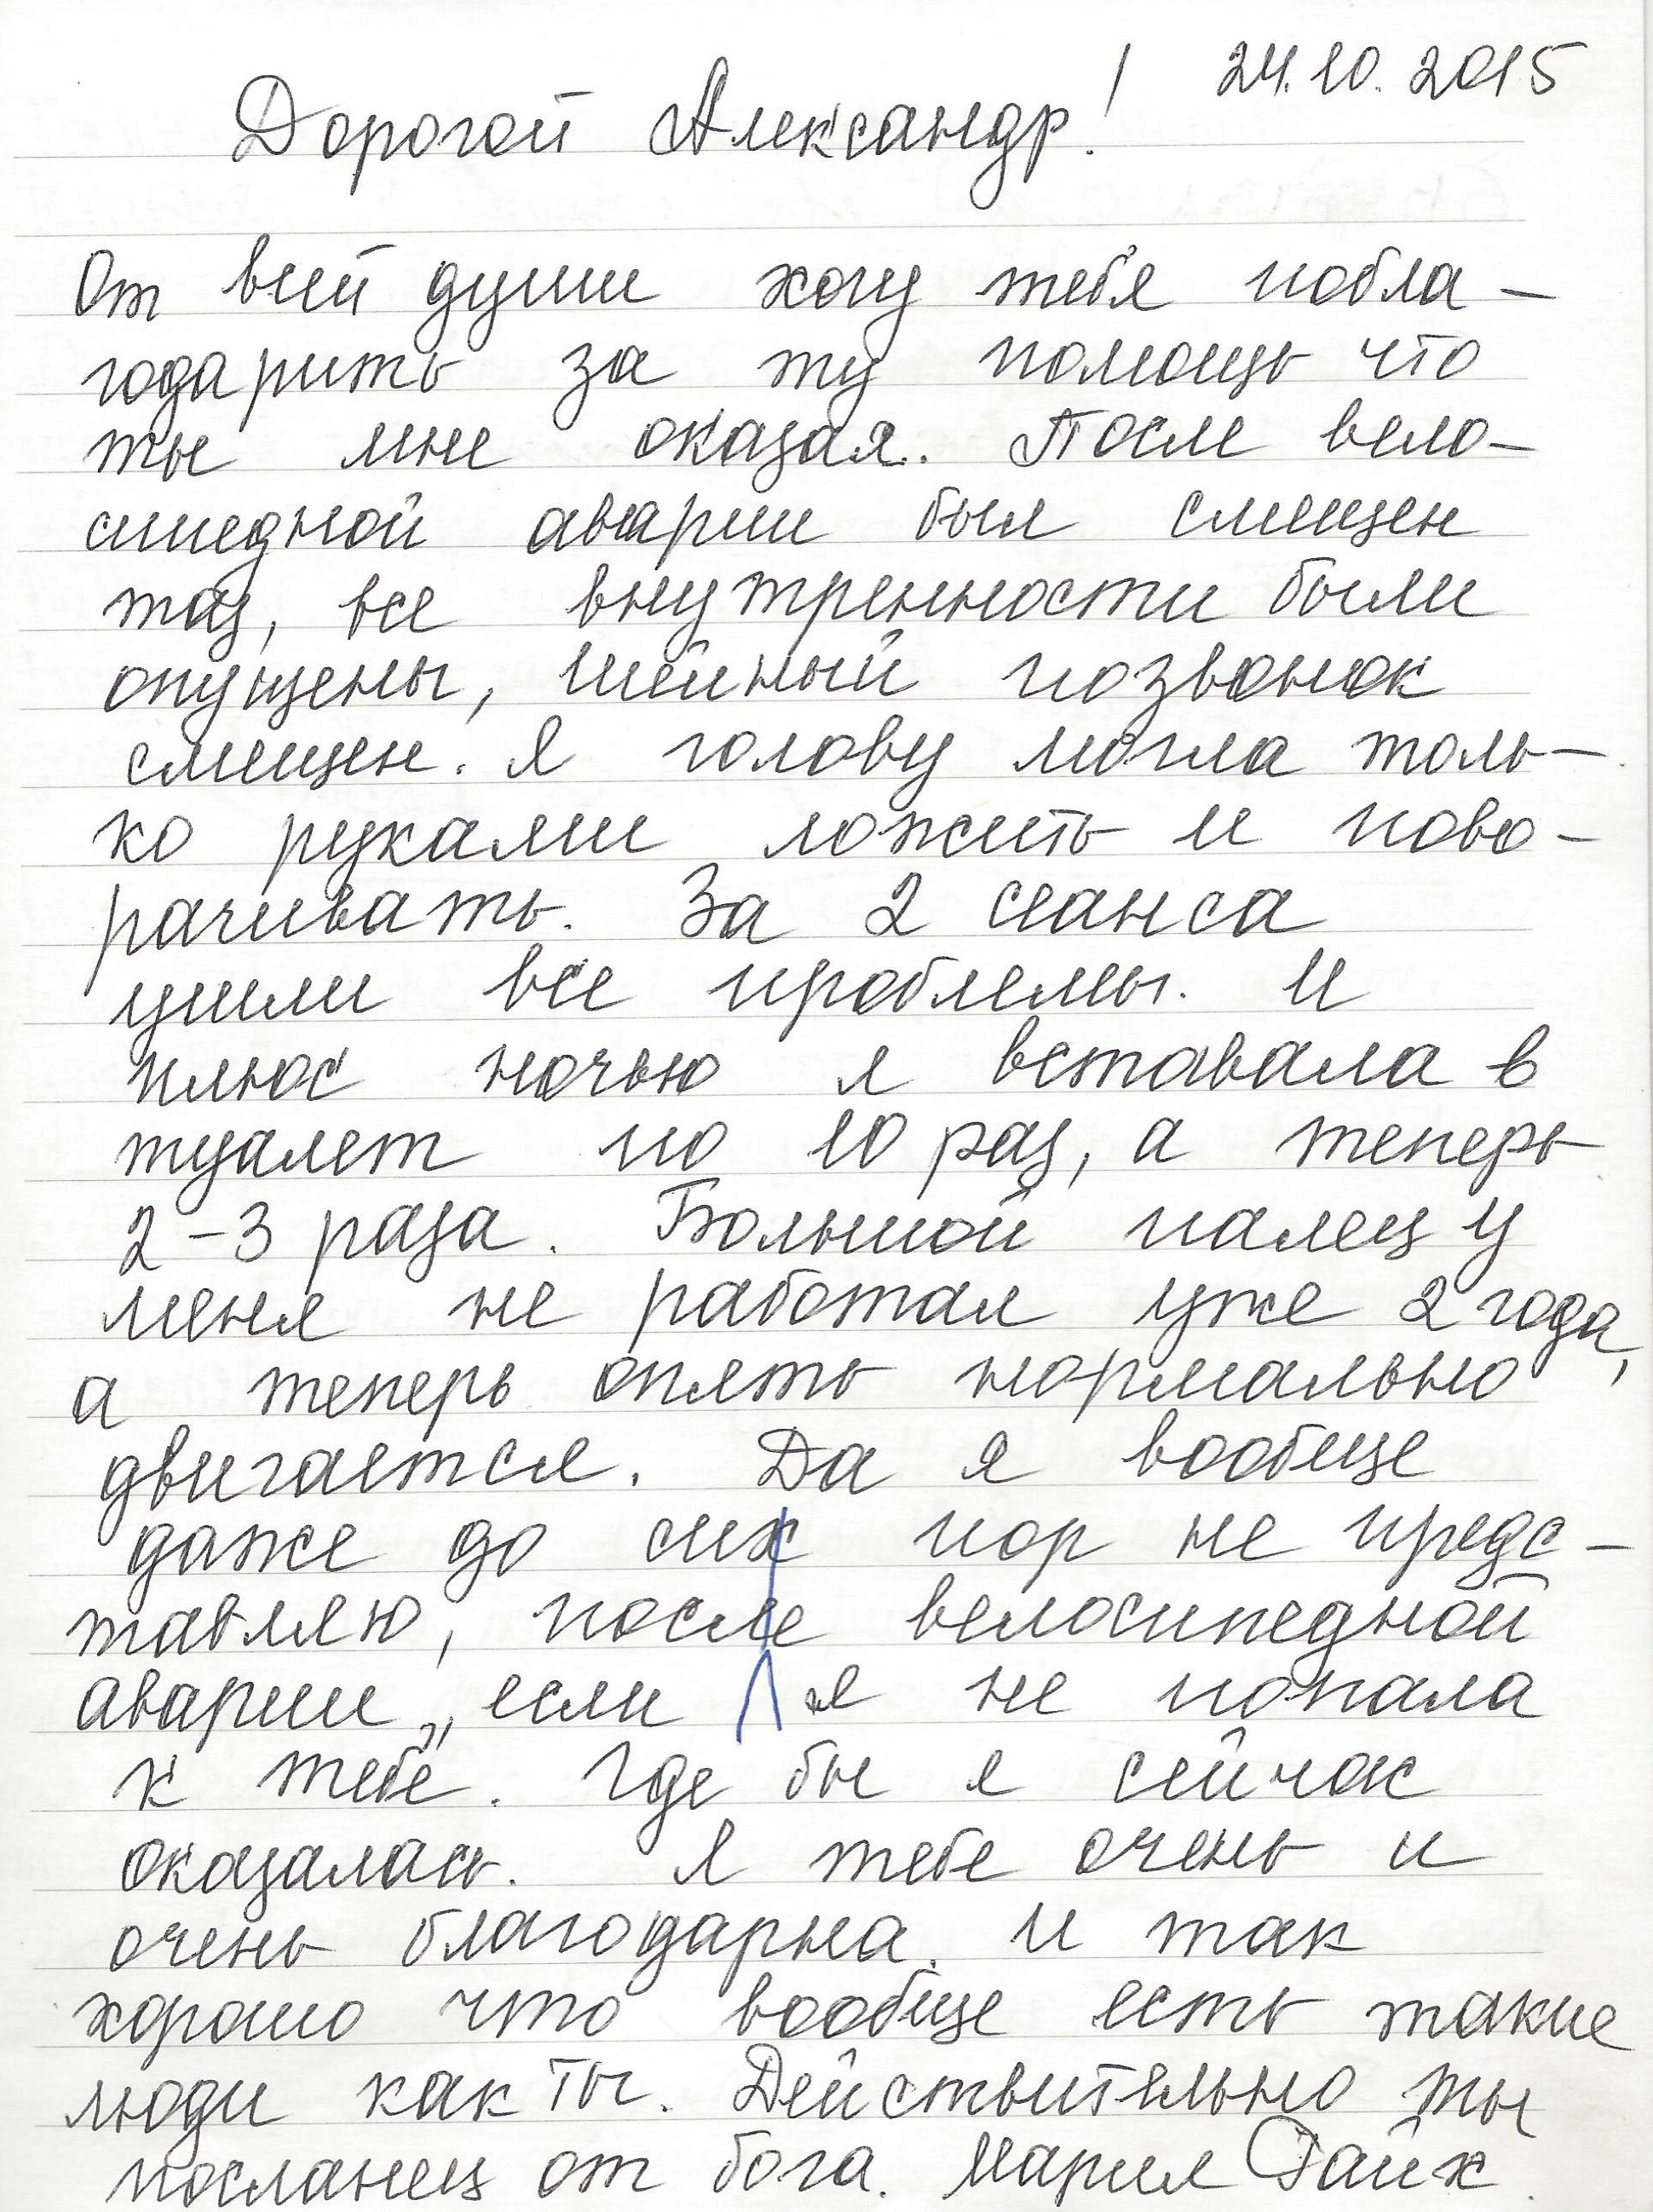 24.10.2015
Дорогой Александр!
От всей души хочу тебя побла-
годарить за ту помощь что
ты мне оказал. После вело-
сипедной аварии был смещен
таз, все внутренности были
опущены, шейный позвонок
смещен. Я голову могла толь-
ко руками ложить и пово-
рачивать. За 2 сеанса
ушли все проблемы. И
плюс ночью я вставала в
туалет по 10 раз, а теперь
2-3 раза. Большой палец у
меня не работал уже 2 года,
а теперь опять нормально
двигается. Да я вообще
даже до сих пор не предс-
тавляю, после велосипедной
аварии, если я не попала
к тебе. Где бы я сейчас
оказалась. Я тебе очень и
очень благодарна. И так
хорошо что вообще есть такие
люди как ты. Действительно ты
посланец от бога. Мария Райх